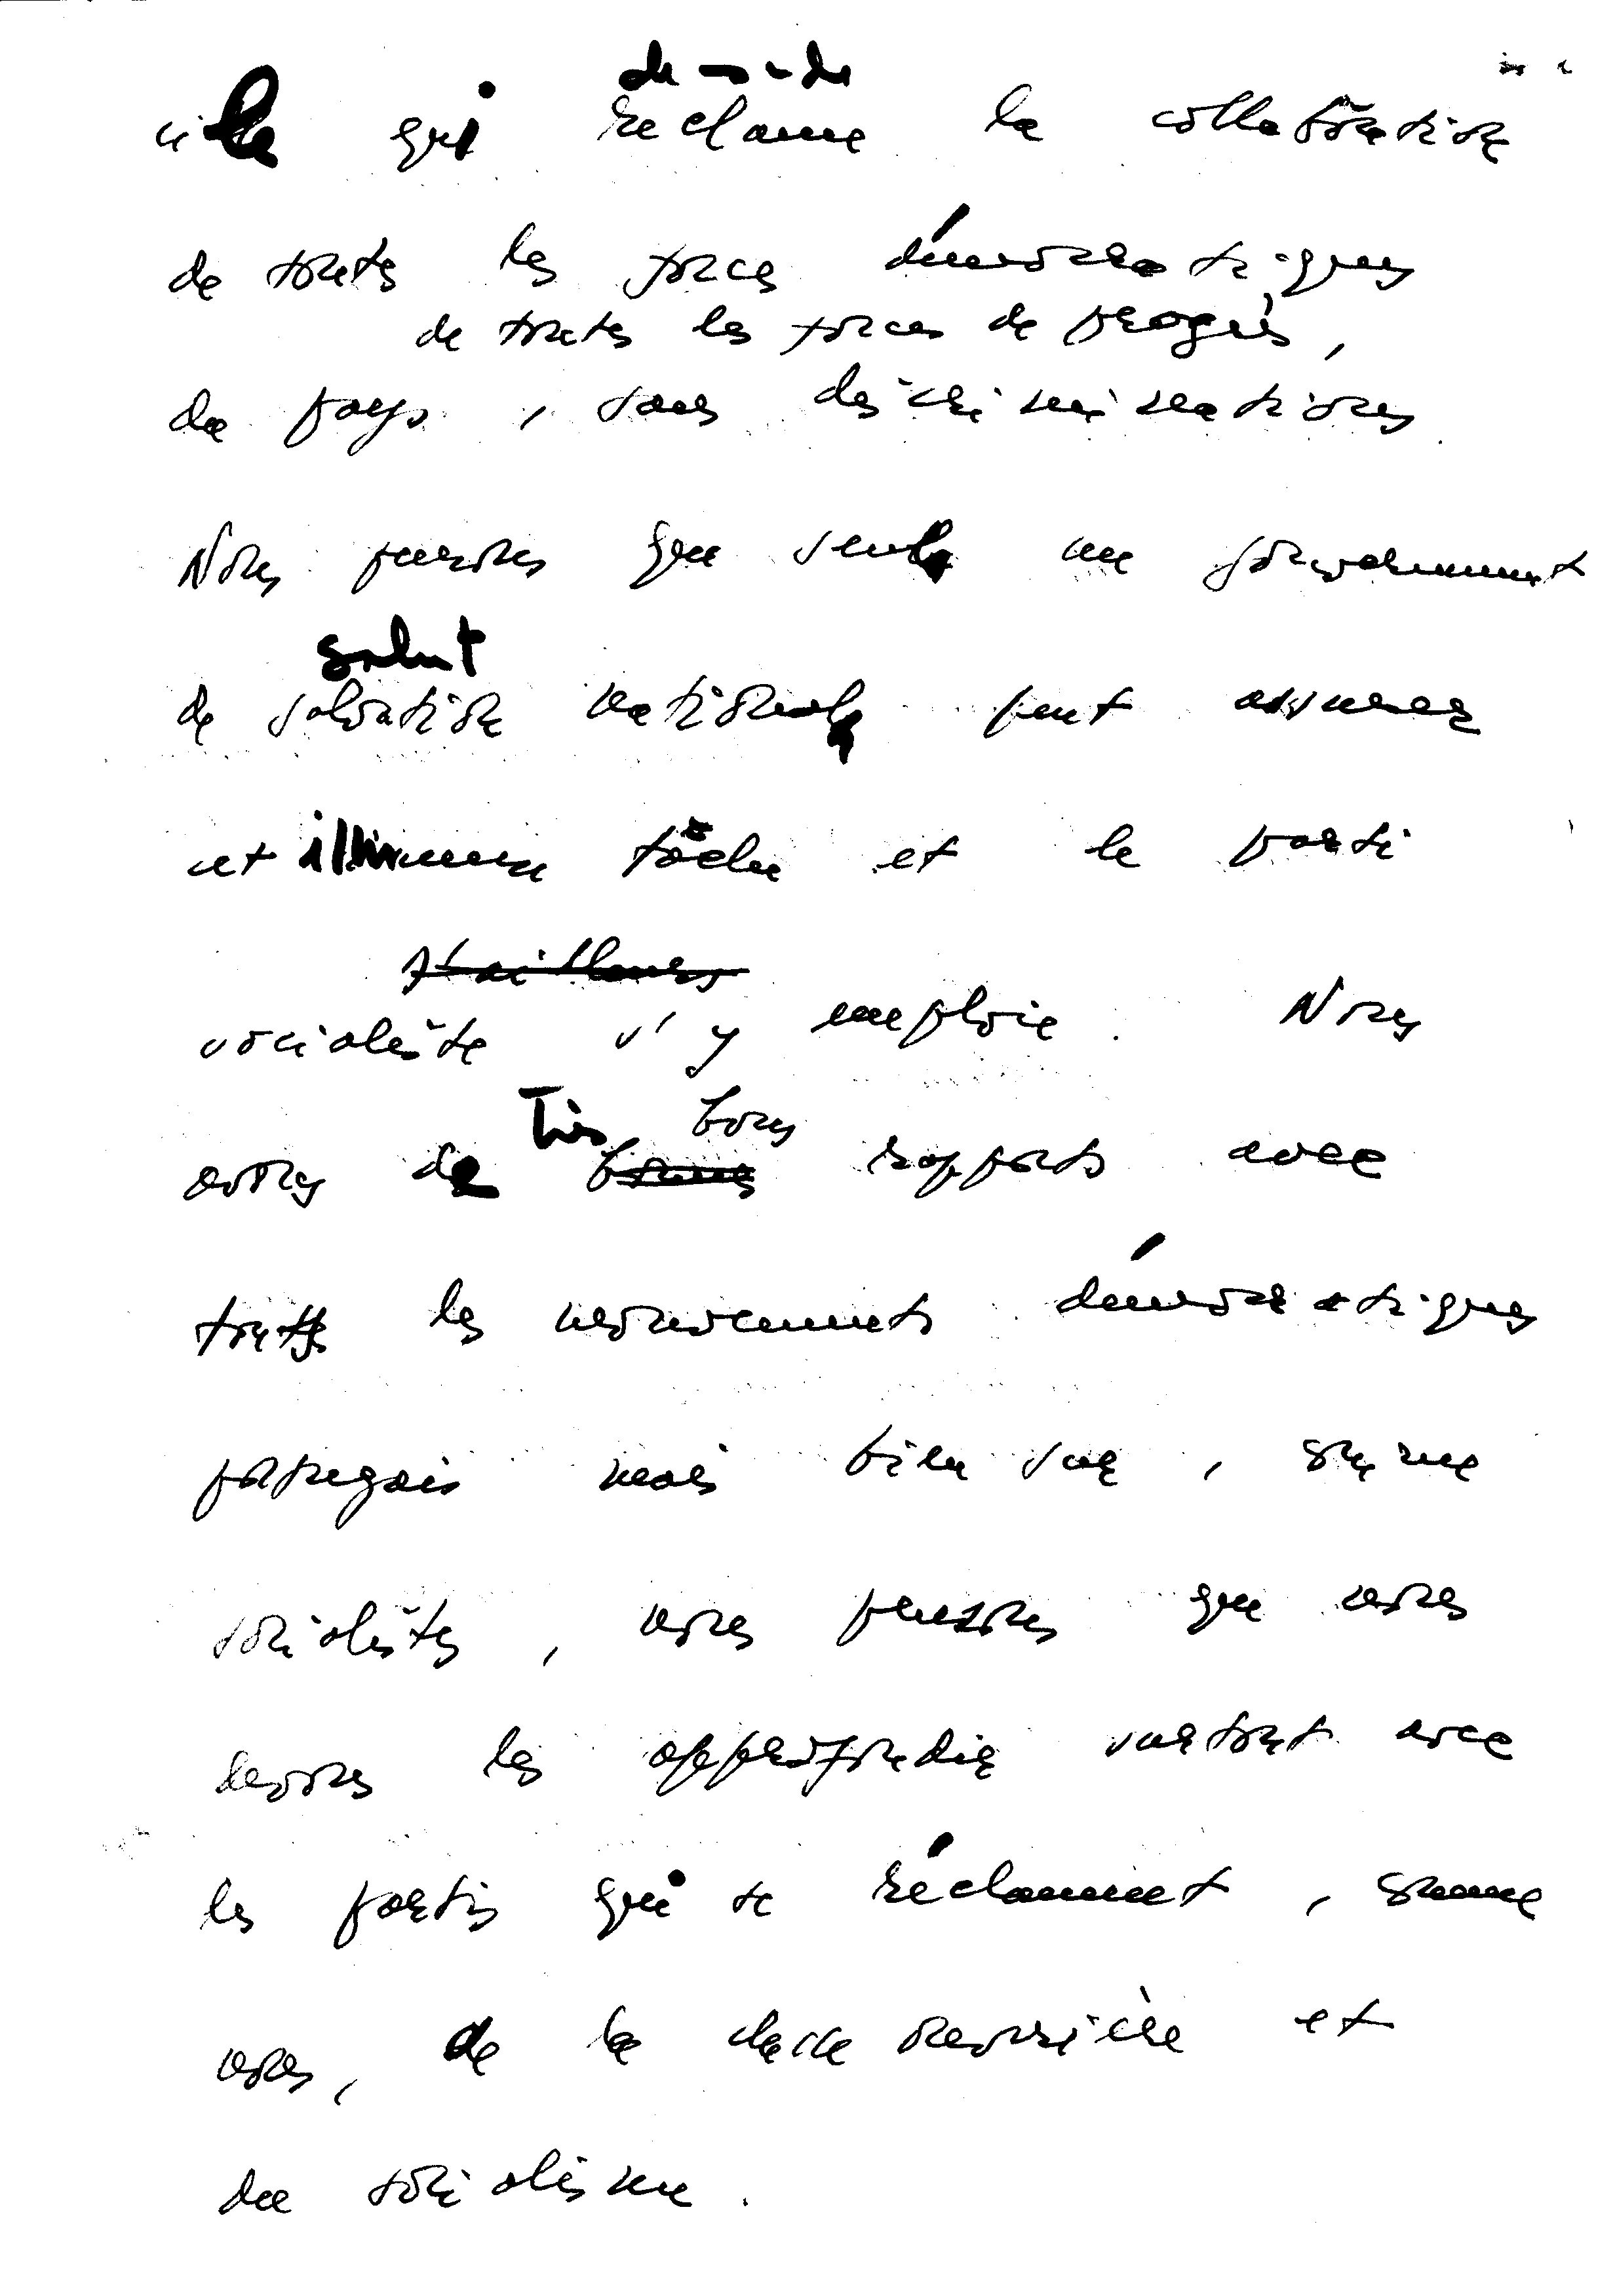 demande
cile qui réclame la collaboration
de toutes les forces démocratiques
de toutes les forces de progrès,
du pays, sans discriminations.
Nous pensons que seul un gouvernement
salut
de salvation national peut assurer
cet immense tâche et le parti
d'ailleurs
socialiste s'y emploie. Nous
Très bons
avons de bonnes rapports avec
touts les mouvements démocratiques
portugais mais bien sur, comme
socialistes, nous pensons que nous
devons les approfondir surtout avec
les partis qui se réclament, comme
nous, de la classe ouvrière et
du socialisme.